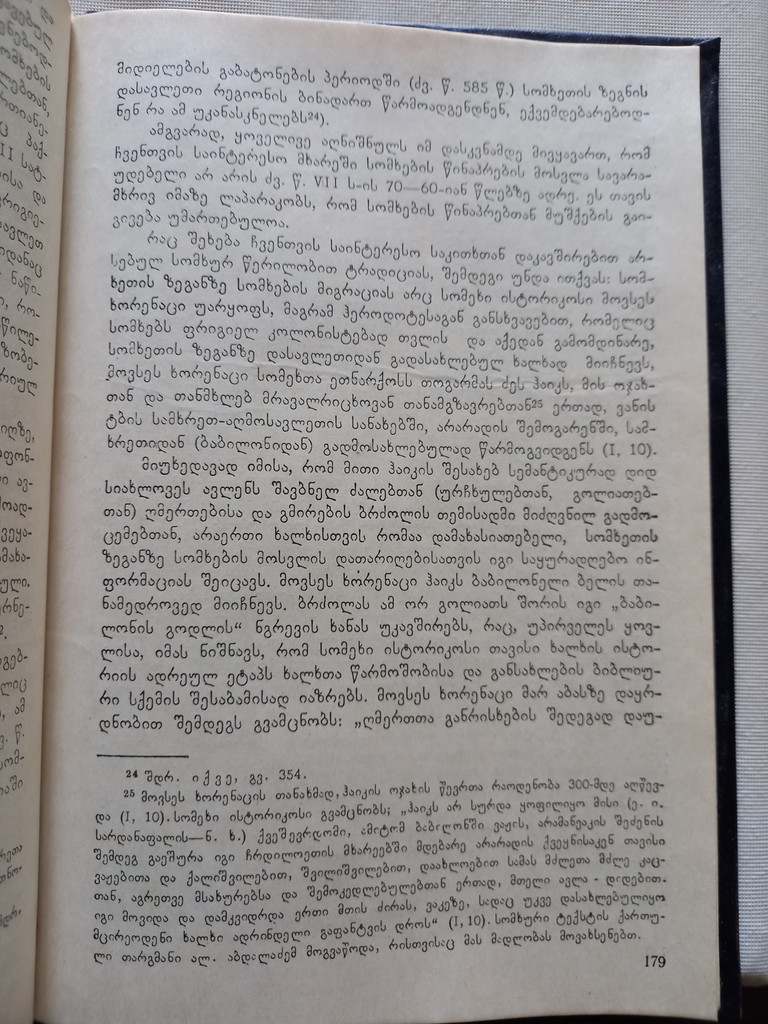 მიდიელების გაბატონების პერიოდში (ძვ. წ. 585 წ.) სომხეთის ზეგნის
დასავლეთი რეგიონის ბინადართ წარმოადგენდნენ, ექვემდებარებოდ-
ნენ რა ამ უკანასკნელებს²⁴).
ამგვარად, ყოველივე აღნიშნულს იმ დასკვნამდე მივყავართ, რომ
ჩვენთვის საინტერესო მხარეში სომხების წინაპრების მოსვლა სავარა-
უდებელი არ არის ძვ. წ. VII ს-ის 70—60-იან წლებზე ადრე. ეს თავის
მხრივ იმაზე ლაპარაკობს, რომ სომხების წინაპრებთან მუშქების გაი-
გივება უმართებულოა.
რაც შეხება ჩვენთვის საინტერესო საკითხთან დაკავშირებით არ-
სებულ სომხურ წერილობით ტრადიციას, შემდეგი უნდა ითქვას: სომ-
ხეთის ზეგანზე სომხების მიგრაციას არც სომეხი ისტორიკოსი მოვსეს
ხორენაცი უარყოფს, მაგრამ ჰეროდოტესაგან განსხვავებით, რომელიც
სომხებს ფრიგიელ კოლონისტებად თვლის და აქედან გამომდინარე,
სომხეთის ზეგანზე დასავლეთიდან გადასახლებულ ხალხად მიიჩნევს,
მოვსეს ხორენაცი სომეხთა ეთნარქოსს თოგარმას ძეს ჰაიკს, მის ოჯახ-
თან და თანმხლებ მრავალრიცხოვან თანამგზავრებთან²⁵ ერთად, ვანის
ტბის სამხრეთ-აღმოსავლეთის სანახებში, არარადის შემოგარენში, სამ-
ხრეთიდან (ბაბილონიდან) გადმოსახლებულად წარმოგვიდგენს (I, 10).
მიუხედავად იმისა, რომ მითი ჰაიკის შესახებ სემანტიკურად დიდ
სიახლოვეს ავლენს შავბნელ ძალებთან (ურჩხულებთან, გოლიათებ-
თან) ღმერთებისა და გმირების ბრძოლის თემისადმი მიძღვნილ გადმო-
ცემებთან, არაერთი ხალხისთვის რომაა დამახასიათებელი, სომხეთის
ზეგანზე სომხების მოსვლის დათარიღებისათვის იგი საყურადღებო ინ-
ფორმაციას შეიცავს. მოვსეს ხორენაცი ჰაიკს ბაბილონელი ბელის თა-
ნამედროვედ მიიჩნევს. ბრძოლას ამ ორ გოლიათს შორის იგი „ბაბი-
ლონის გოდლის“ ნგრევის ხანას უკავშირებს, რაც, უპირველეს ყოვ-
ლისა, იმას ნიშნავს, რომ სომეხი ისტორიკოსი თავისი ხალხის ისტო-
რიის ადრეულ ეტაპს ხალხთა წარმოშობისა და განსახლების ბიბლიუ-
რი სქემის შესაბამისად იაზრებს. მოვსეს ხორენაცი მარ აბასზე დაყრ-
დნობით შემდეგს გვამცნობს: „ღმერთთა განრისხების შედეგად დაუ-
²⁴ შდრ. იქვე, გვ. 354.
²⁵ მოვსეს ხორენაცის თანახმად, ჰაიკის ოჯახის წევრთა რაოდენობა 300-მდე აღწევ-
და (I, 10). სომეხი ისტორიკოსი გვამცნობს; „ჰაიკს არ სურდა ყოფილიყო მისი (ე. ი.
სარდანაფალის—ნ. ხ.) ქვეშევრდომი, ამიტომ ბაბილონში ვაჟის, არამანეაკის შეძენის
შემდეგ გაეშურა იგი ჩრდილოეთის მხარეებში მდებარე არარადის ქვეყნისაკენ თავისი
ვაჟებითა და ქალიშვილებით, შვილიშვილებით, დაახლოებით სამას მძლეთა მძლე კაც-
თან, აგრეთვე მსახურებსა და შემოკედლებულებთან ერთად, მთელი ავლა - დიდებით.
იგი მოვიდა და დამკვიდრდა ერთი მთის ძირას, ვაკეზე, სადაც უკვე დასახლებულიყო
მცირეოდენი ხალხი ადრინდელი გაფანტვის დროს“ (I, 10). სომხური ტექსტის ქართუ-
ლი თარგმანი ალ. აბდალაძემ მოგვაწოდა, რისთვისაც მას მადლობას მოვახსენებთ.
179